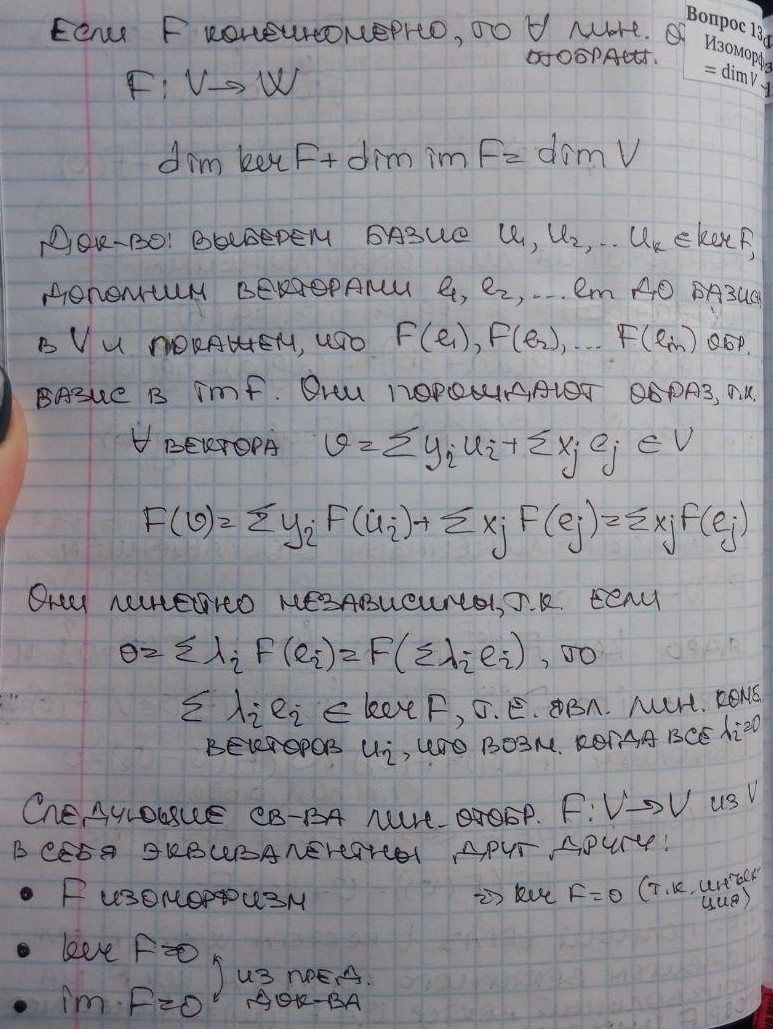 Если F конечномерно, то ∀ лин.
отображ.
Вопрос 13
Изоморф
= dim V
F: V→W
dim ker F + dim im F = dim V
Док-во: выберем базис u₁, u₂, .. uₖ ∈ ker F,
дополним векторами e₁, e₂, ... em до базиса
в V и покажем, что F(e₁), F(e₂), ... F(em) обр.
базис в im F. Они порождают образ, т.к.
∀ вектора v = Σ yᵢ uᵢ + Σ xⱼ eⱼ ∈ V
F(v) = Σ yᵢ F(uᵢ) + Σ xⱼ F(eⱼ) = Σ xⱼ F(eⱼ)
Они линейно независимы, т.к. если
0 = Σ λᵢ F(eᵢ) = F(Σ λᵢ eᵢ), то
Σ λᵢ eᵢ ∈ ker F, т.е. явл. лин. комб.
векторов uᵢ, что возм. когда все λᵢ=0
Следующие св-ва лин. отобр. F: V→V из V
в себя эквивалентны друг другу:
• F изоморфизм ⇒ ker F=0 (т.к. инъек
ция)
• ker F=0
из пред.
• im F=0 док-ва